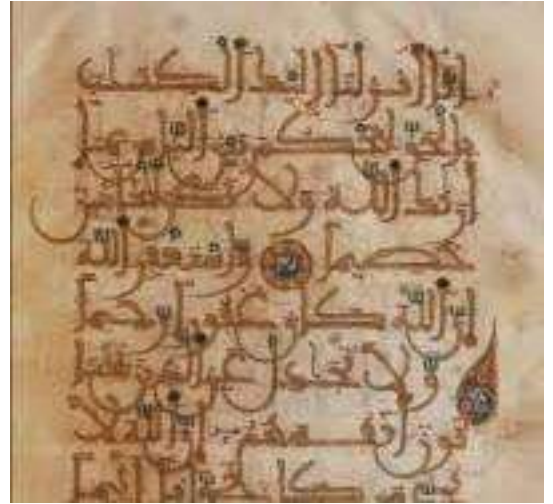 إنا أنزلنا إليك الكتب
بالحق لتحكم بين الناس بما
أريك الله ولا تكن للخائنين
خصيما واستغفر الله
إن الله كان غفورا رحيما
ولا تجادل عن الذين يختا
نون أنفسهم إن الله لا
يحب من كان خوانا أثيما